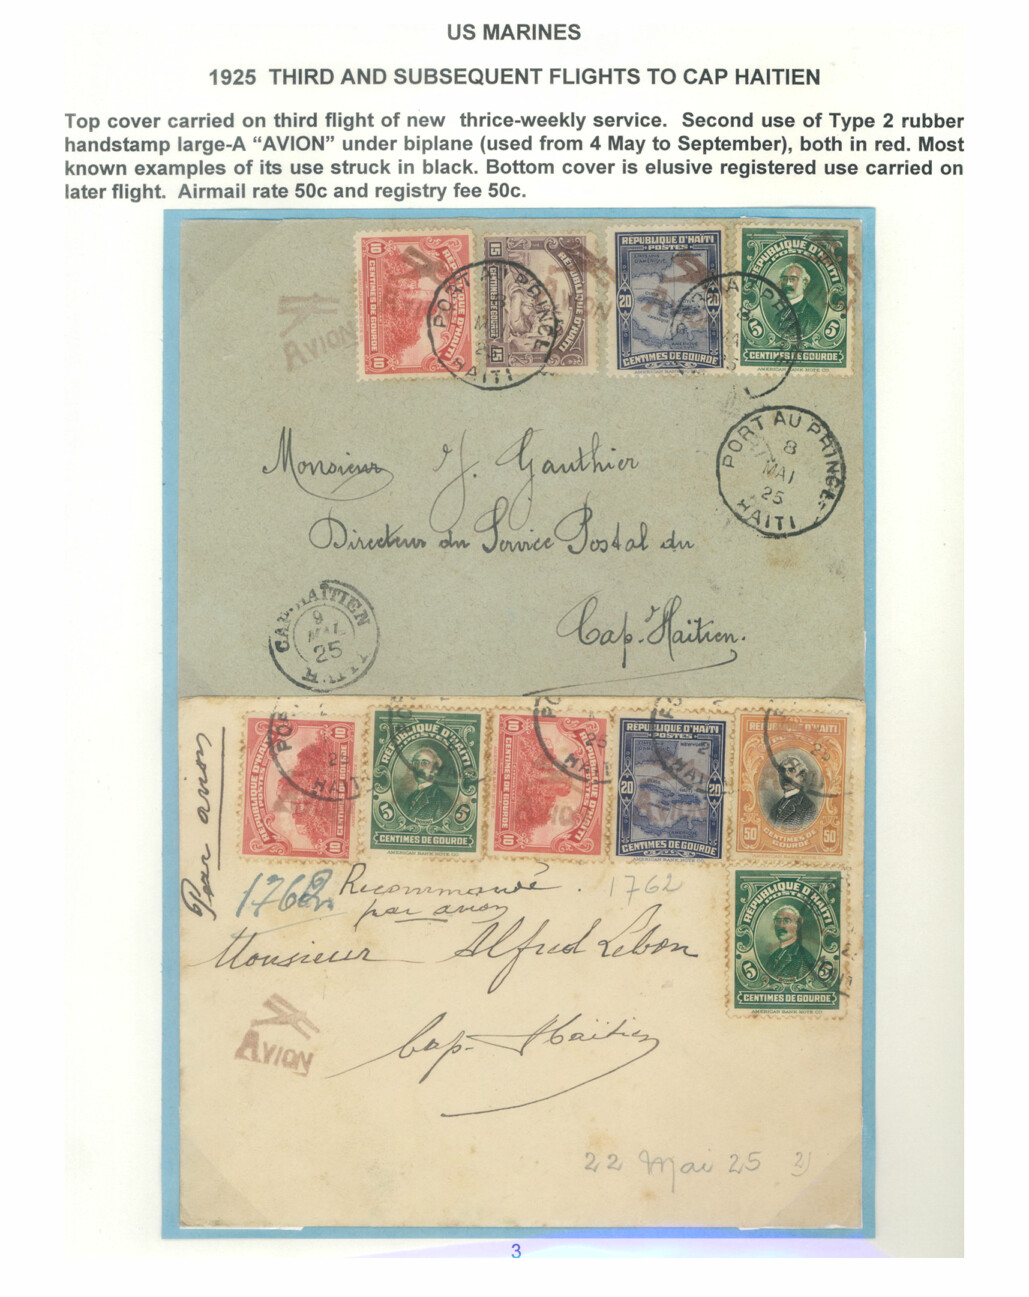 US MARINES
1925 THIRD AND SUBSEQUENT FLIGHTS TO CAP HAITIEN
Top cover carried on third flight of new thrice-weekly service. Second use of Type 2 rubber
handstamp large-A “AVION” under biplane (used from 4 May to September), both in red. Most
known examples of its use struck in black. Bottom cover is elusive registered use carried on
later flight. Airmail rate 50c and registry fee 50c.
10 CENTIMES DE GOURDE 10
15 CENTIMES DE GOURDE 15
RÉPUBLIQUE D'HAÏTI
POSTES
20 20
CENTIMES DE GOURDE
RÉPUBLIQUE D'HAÏTI
POSTES
5 5
CENTIMES DE GOURDE
AMERICAN BANK NOTE CO.
AVION
PORT AU PRINCE
HAITI
Monsieur J. Gauthier
PORT AU PRINCE
8
MAI
25
HAITI
Directeur du Service Postal du
Cap-Haïtien.
CAP-HAÏTIEN
9
MAI
25
HAITI
Par avion
RÉPUBLIQUE D'HAÏTI
POSTES
10 CENTIMES DE GOURDE 10
RÉPUBLIQUE D'HAÏTI
5 5
CENTIMES DE GOURDE
AMERICAN BANK NOTE CO.
10 CENTIMES DE GOURDE 10
RÉPUBLIQUE D'HAÏTI
POSTES
20 20
CENTIMES DE GOURDE
RÉPUBLIQUE D'HAÏTI
50 CENTIMES DE GOURDE 50
HAITI
1762 Recommandé. 1762
par avion
RÉPUBLIQUE D'HAÏTI
POSTES
5 5
CENTIMES DE GOURDE
AMERICAN BANK NOTE CO.
Monsieur Alfred Lebon
AVION
Cap-Haïtien
22 Mai 25
3